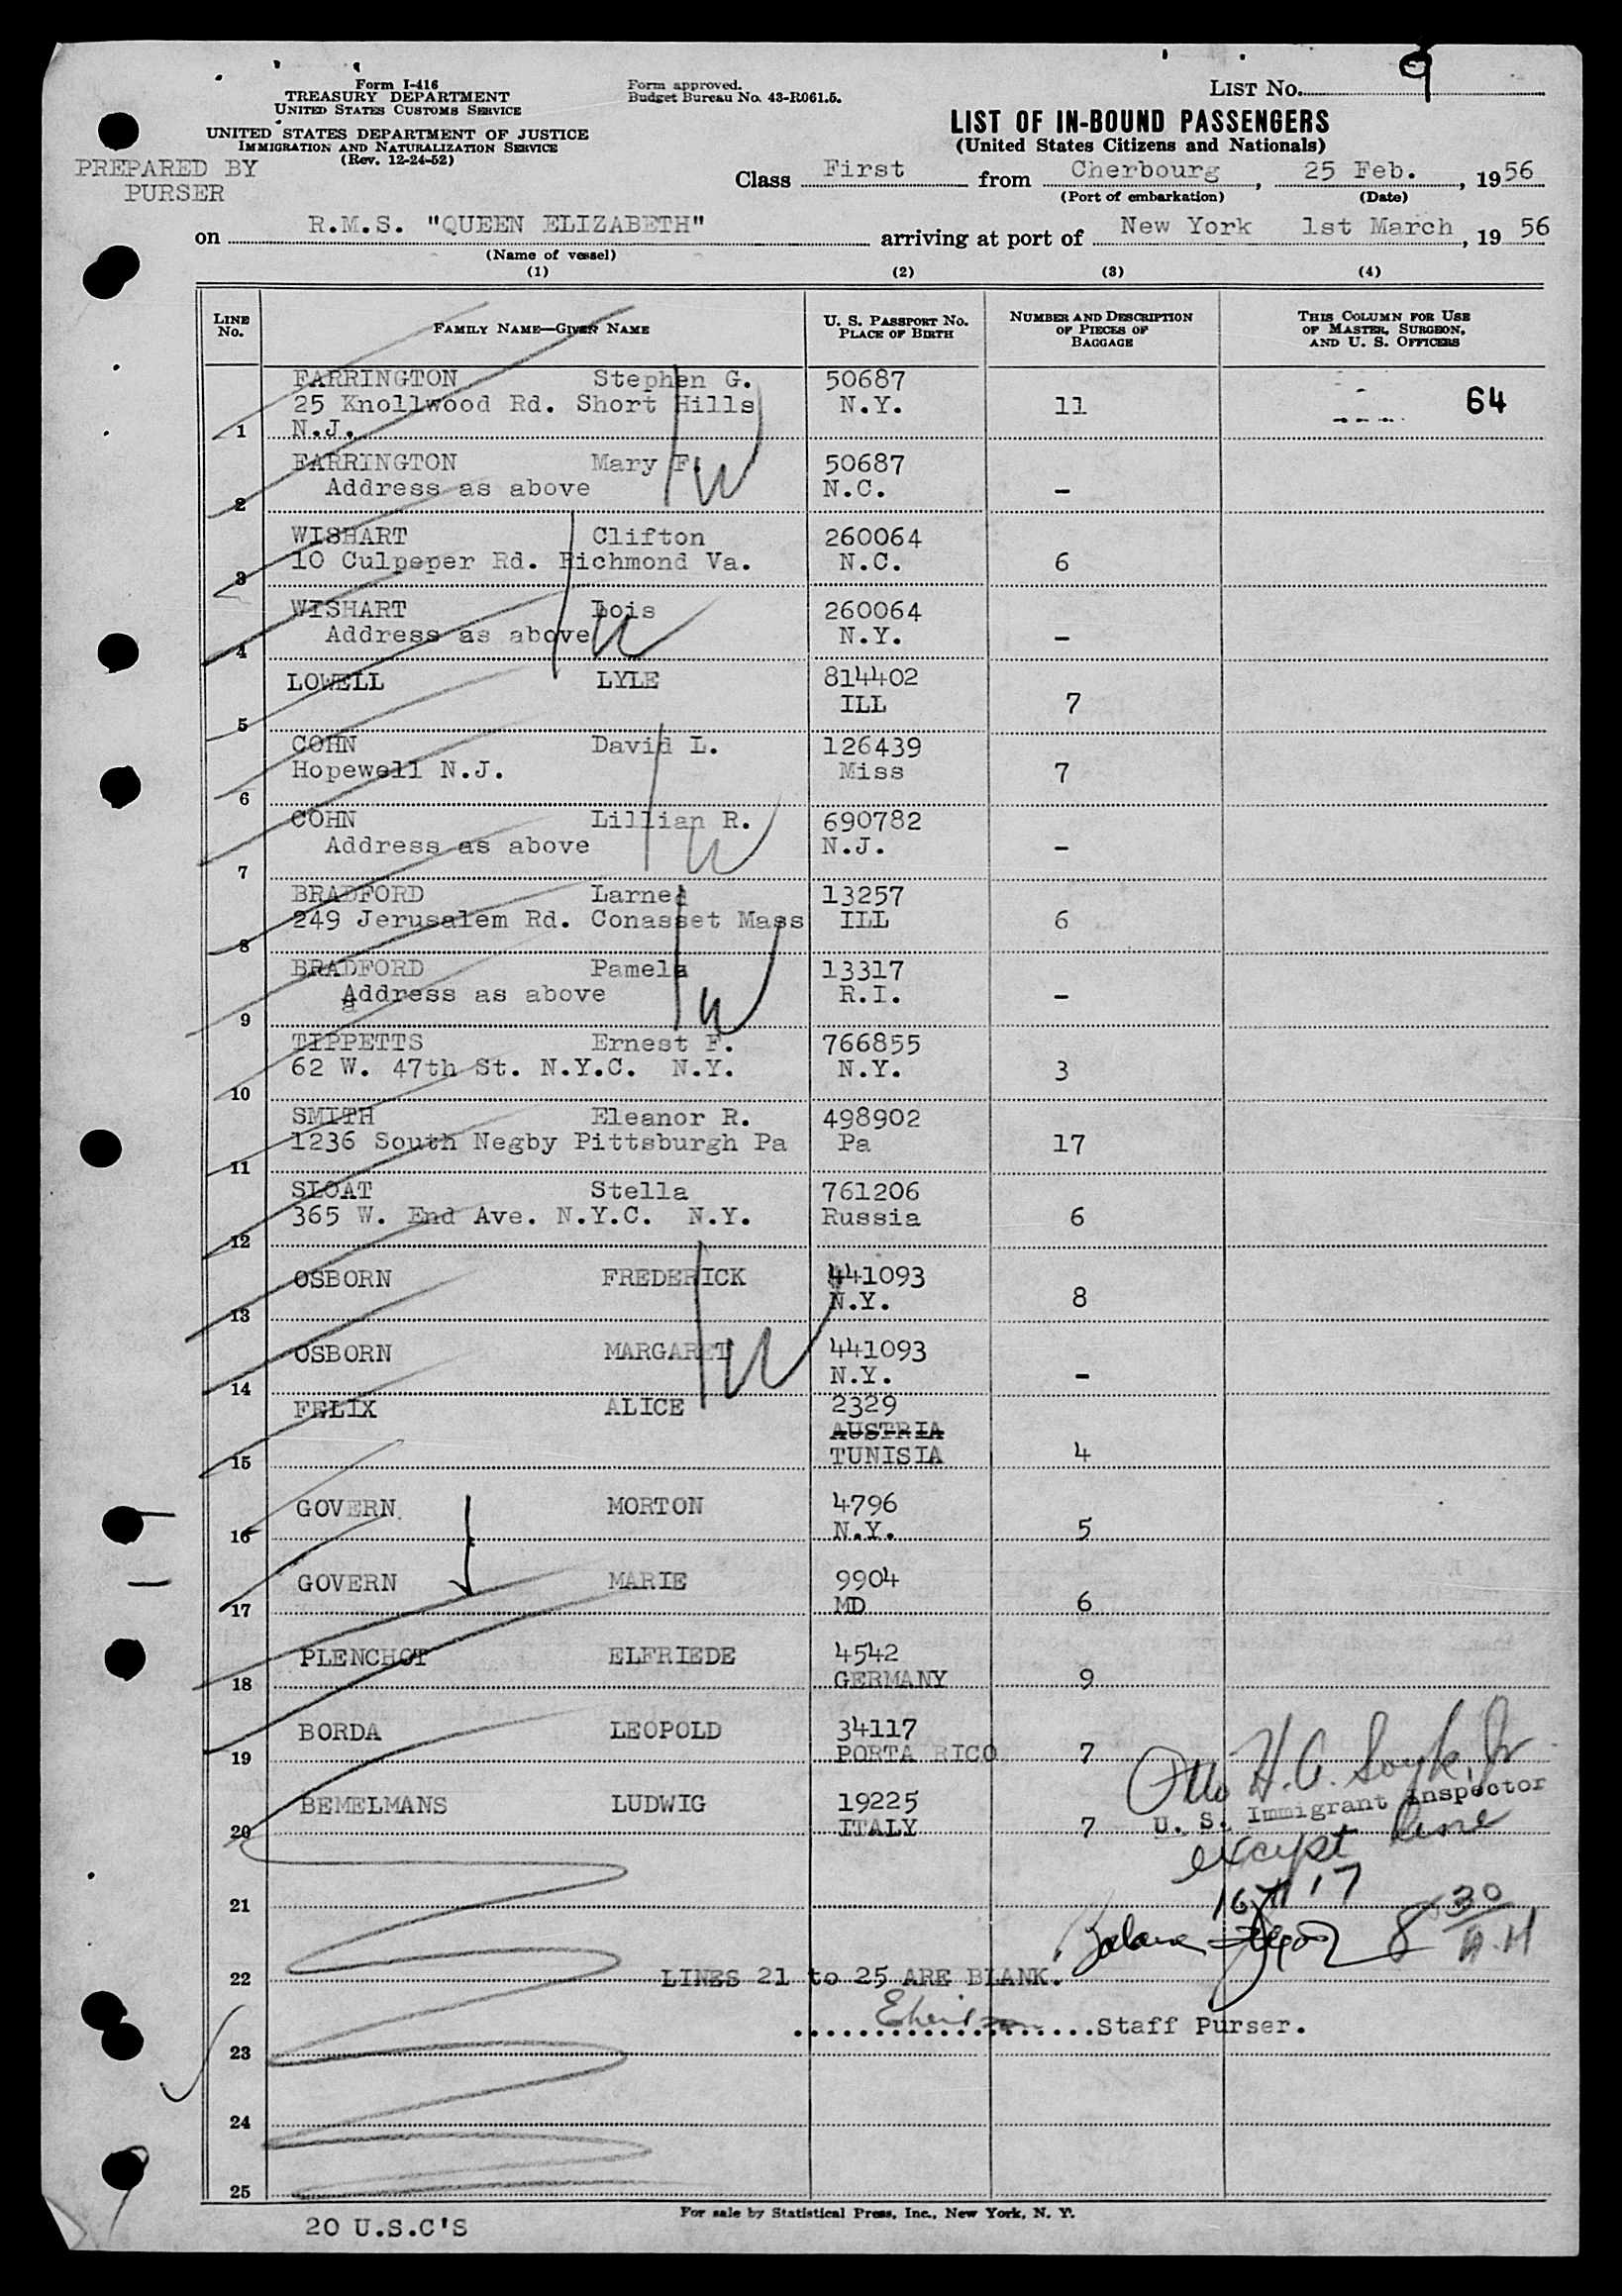 LIST NO. 9
Form I-416
TREASURY DEPARTMENT
UNITED STATES CUSTOMS SERVICE
UNITED STATES DEPARTMENT OF JUSTICE
IMMIGRATION AND NATURALIZATION SERVICE
(Rev. 12-24-52)
Form approved.
Budget Bureau No. 43-R061.5.
PREPARED BY
PURSER
LIST OF IN-BOUND PASSENGERS
(United States Citizens and Nationals)
Class First from Cherbourg, 25 Feb., 1956
(Port of embarkation) (Date)
on R.M.S. "QUEEN ELIZABETH" arriving at port of New York 1st March, 19 56
(Name of vessel)
(1) (2) (3) (4)
LINE No. FAMILY NAME—GIVEN NAME U. S. PASSPORT NO. PLACE OF BIRTH NUMBER AND DESCRIPTION OF PIECES OF BAGGAGE THIS COLUMN FOR USE OF MASTER, SURGEON, AND U. S. OFFICERS
FARRINGTON Stephen G. 50687
25 Knollwood Rd. Short Hills N.Y. 11 64
1 N.J.
FARRINGTON Mary F. 50687
Address as above N.C. -
2
WISHART Clifton 260064
10 Culpeper Rd. Richmond Va. N.C. 6
3
WISHART Lois 260064
Address as above N.Y. -
4
LOWELL LYLE 814402
ILL 7
5
COHN David L. 126439
Hopewell N.J. Miss 7
6
COHN Lillian R. 690782
Address as above N.J. -
7
BRADFORD Larned 13257
249 Jerusalem Rd. Conasset Mass ILL 6
8
BRADFORD Pamela 13317
Address as above R.I. -
9
TIPPETTS Ernest F. 766855
62 W. 47th St. N.Y.C. N.Y. N.Y. 3
10
SMITH Eleanor R. 498902
1236 South Negby Pittsburgh Pa Pa 17
11
SLOAT Stella 761206
365 W. End Ave. N.Y.C. N.Y. Russia 6
12
OSBORN FREDERICK 441093
N.Y. 8
13
OSBORN MARGARET 441093
N.Y. -
14
FELIX ALICE 2329
AUSTRIA
15 TUNISIA 4
GOVERN MORTON 4796
16 N.Y. 5
GOVERN MARIE 9904
17 MD 6
PLENCHOT ELFRIEDE 4542
18 GERMANY 9
BORDA LEOPOLD 34117
19 PORTA RICO 7
Otto H.A. Soyk, Jr
BEMELMANS LUDWIG 19225
U. S. Immigrant Inspector
20 ITALY 7
except line
16 + 17
21
8 30 A.M
22 LINES 21 to 25 ARE BLANK.
Staff Purser.
23
24
25
For sale by Statistical Press, Inc., New York, N. Y.
20 U.S.C'S